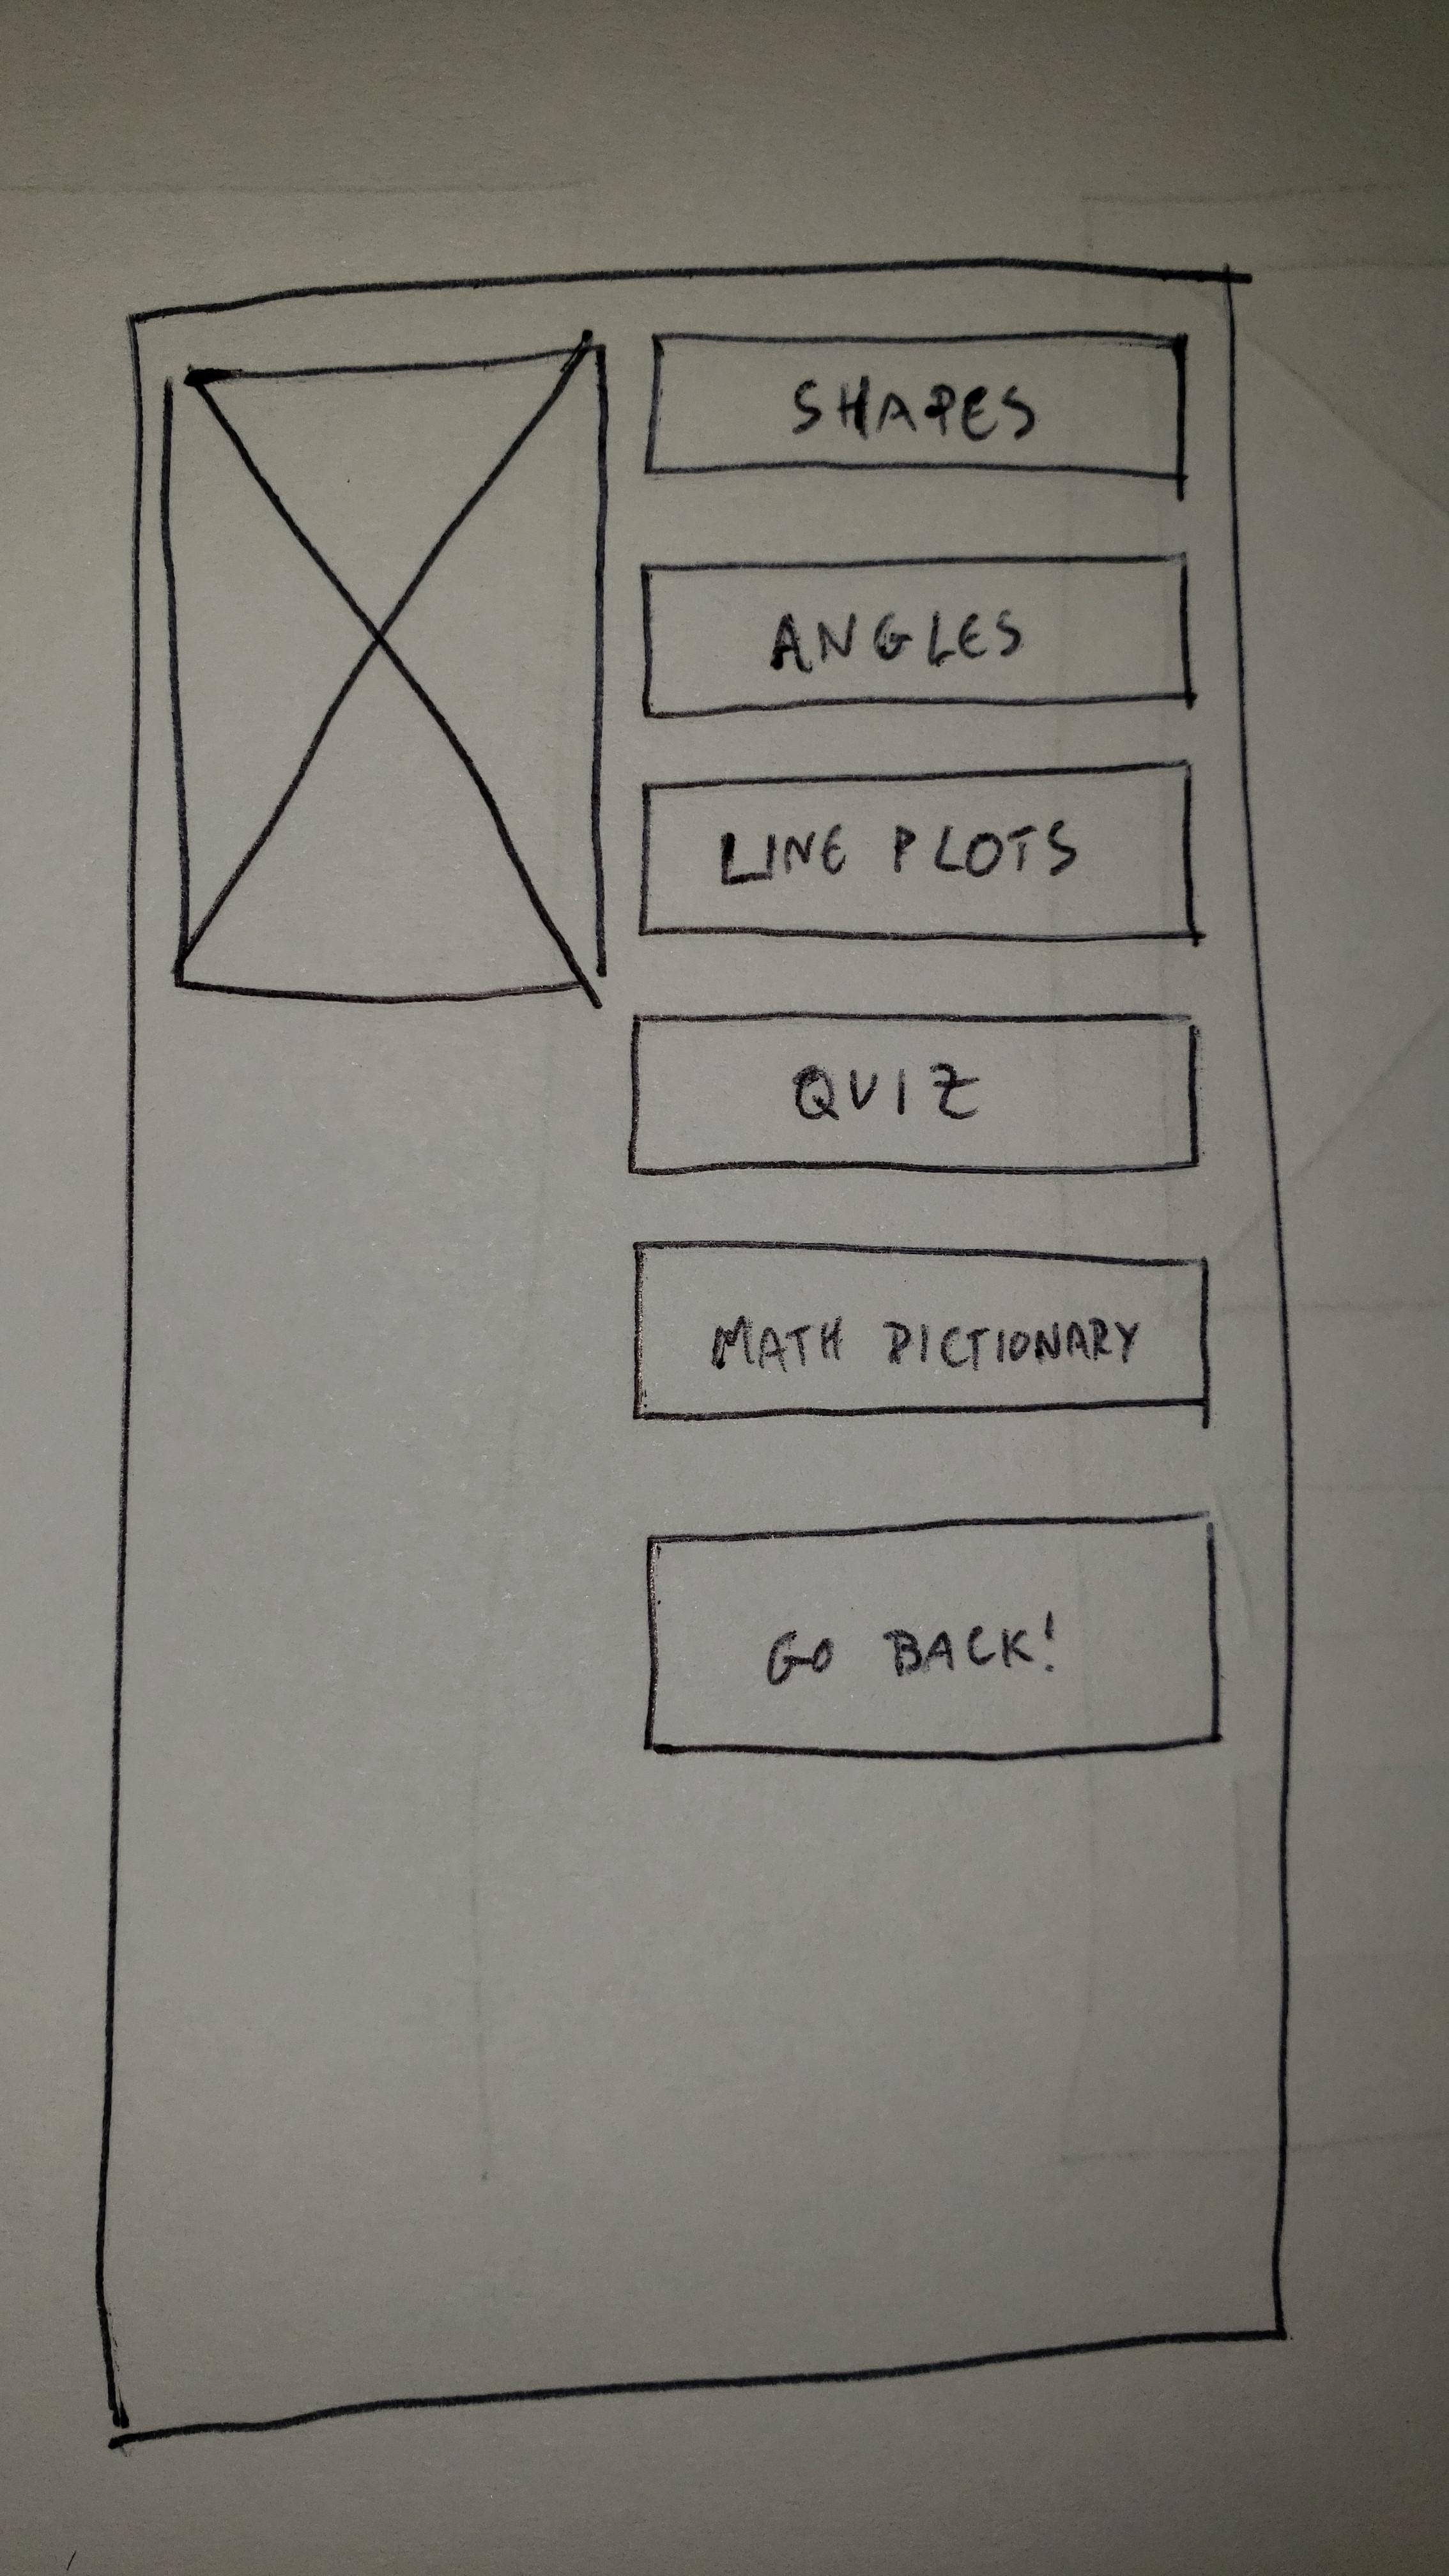 SHAPES
ANGLES
LINE PLOTS
QUIZ
MATH DICTIONARY
GO BACK!